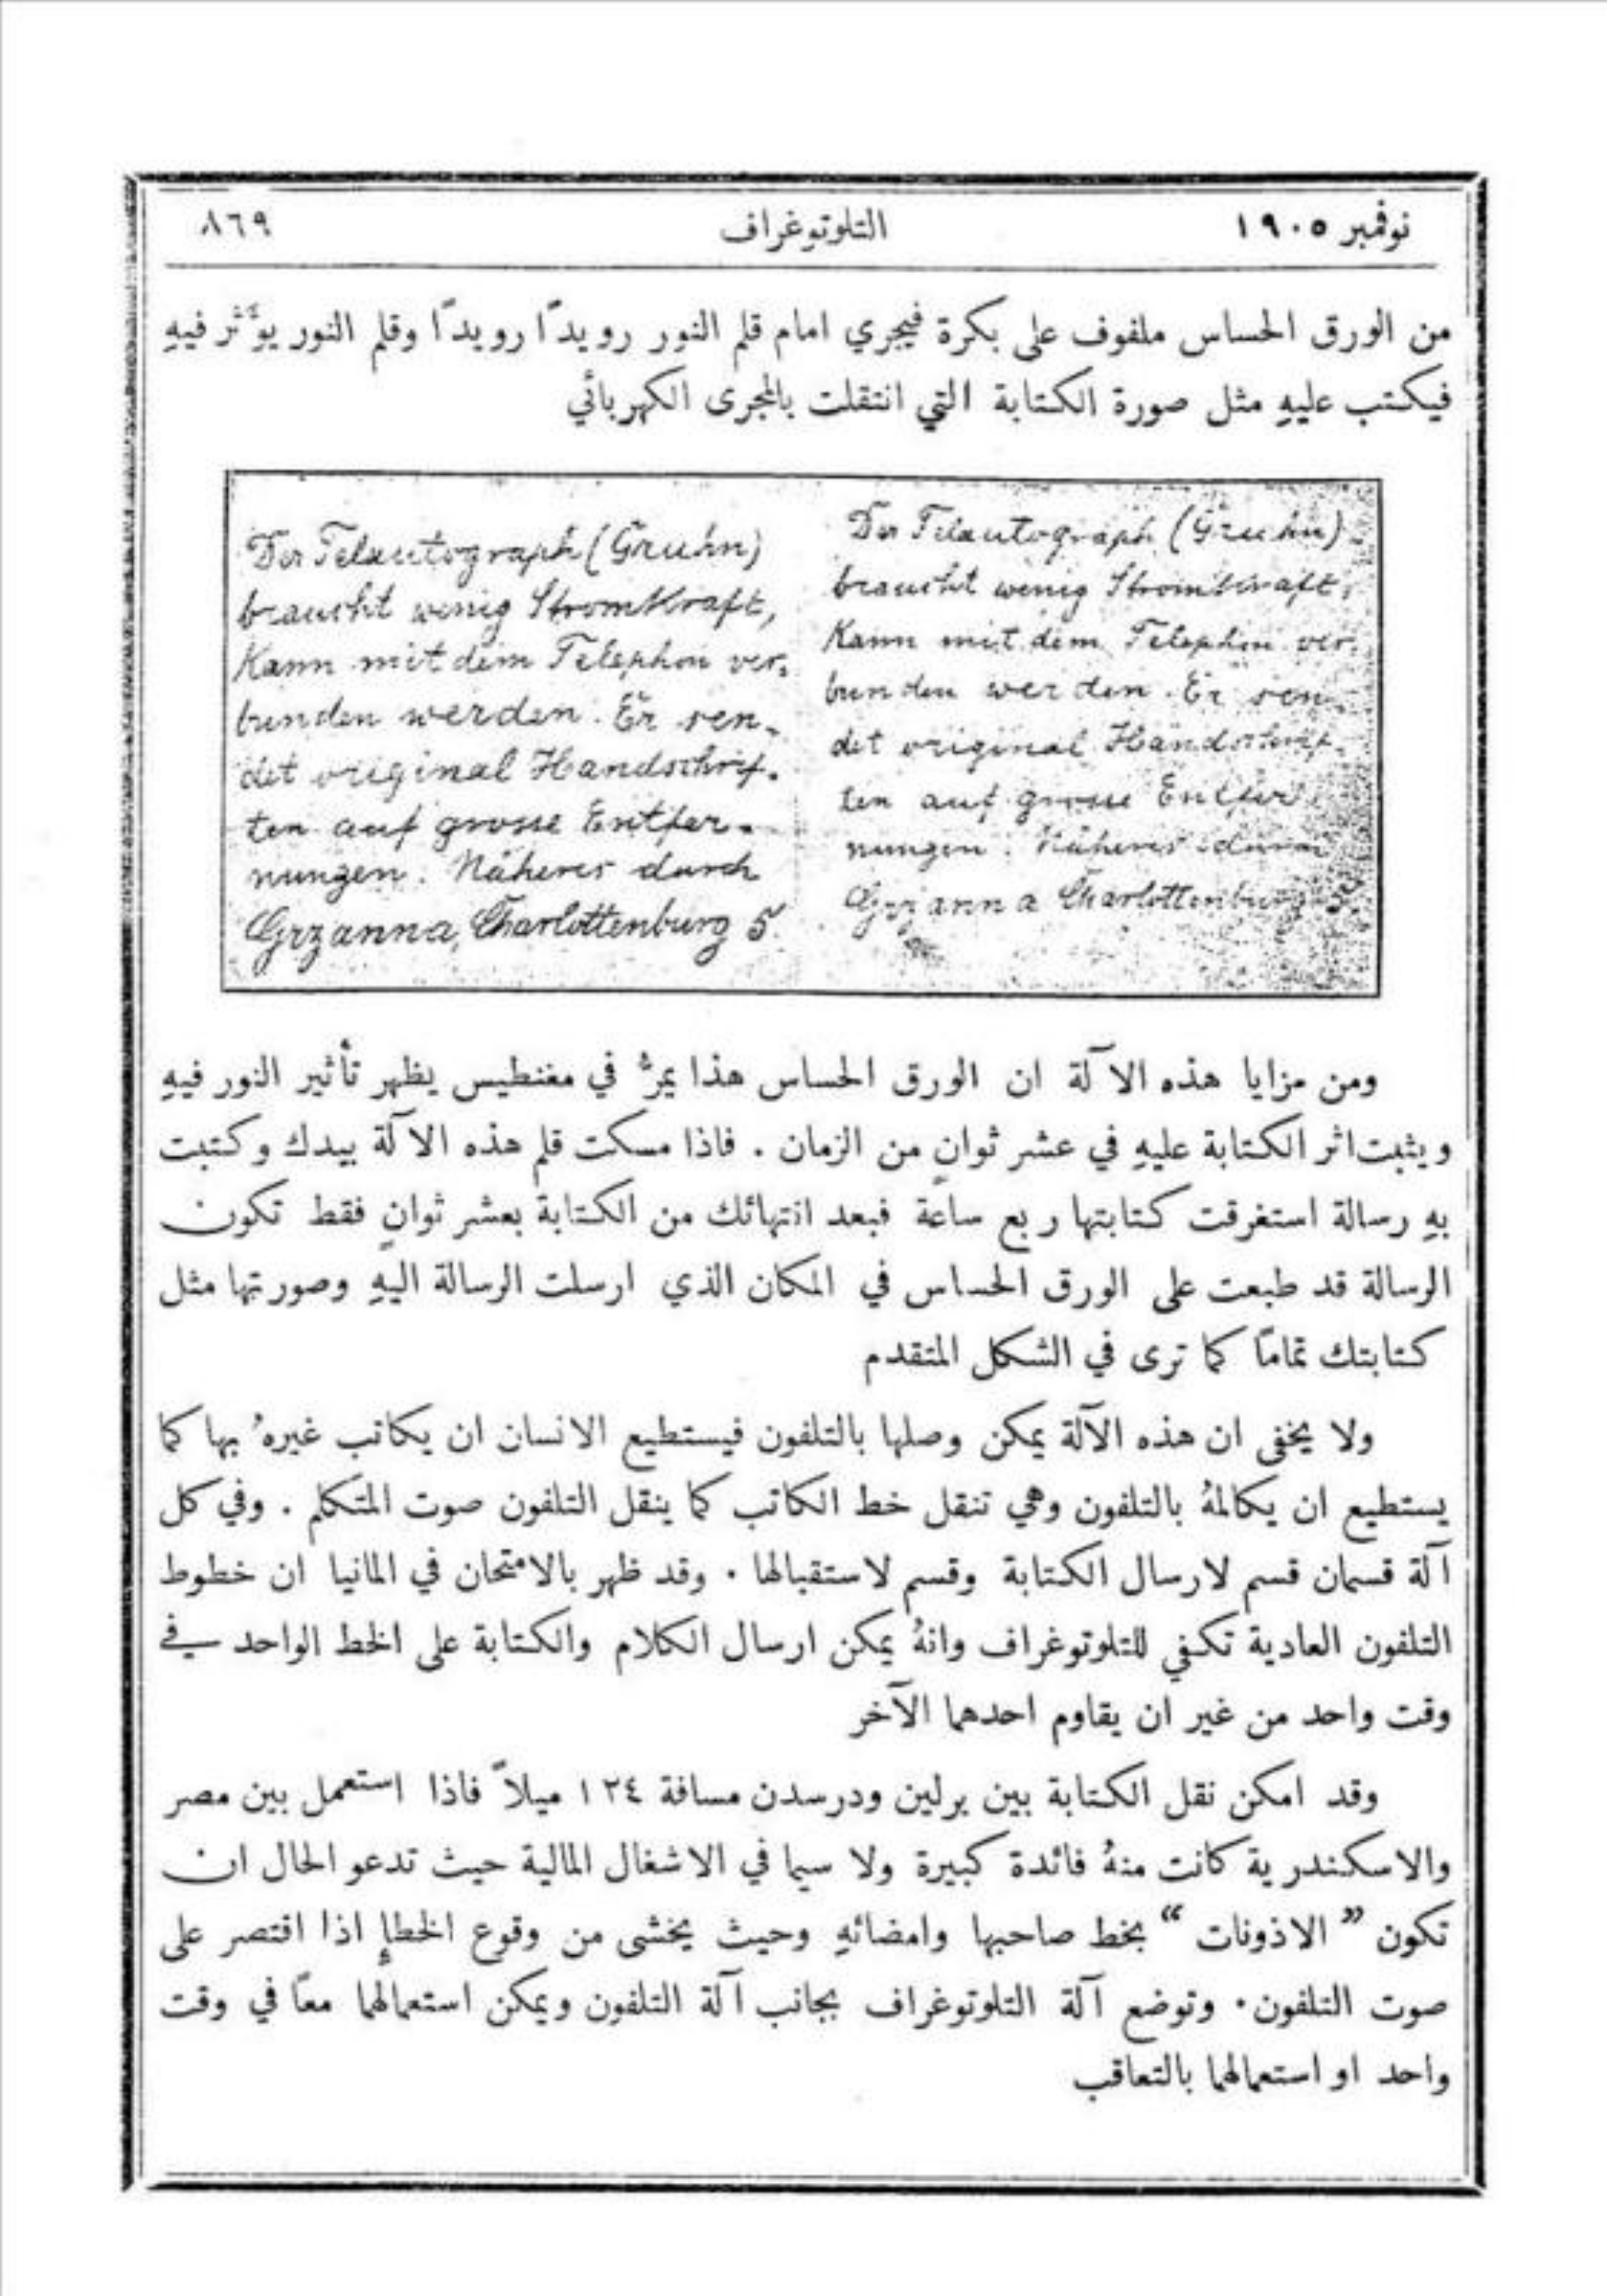 نوفمبر ١٩٠٥ التلوتوغراف ٨٦٩
من الورق الحساس ملفوف على بكرة فيجري امام قلم النور رويدًا رويدًا وقلم النور يؤَثر فيهِ
فيكتب عليهِ مثل صورة الكتابة التي انتقلت بالمجرى الكهربائي
Der Telautograph (Gruhn)
braucht wenig Stromkraft,
Kann mit dem Telephon ver-
bunden werden. Er sen-
det original Handschrif-
ten auf grosse Entfer-
nungen. Näheres durch
Grzanna, Charlottenburg 5.
Der Telautograph (Gruhn)
braucht wenig Stromkraft,
Kann mit dem Telephon ver-
bunden werden. Er sen-
det original Handschrif-
ten auf grosse Entfer-
nungen. Näheres durch
Grzanna Charlottenburg 5.
ومن مزايا هذه الآلة ان الورق الحساس هذا يمرُّ في مغنطيس يظهر تأثير النور فيهِ
ويثبت اثر الكتابة عليهِ في عشر ثوانٍ من الزمان . فاذا مسكت قلم هذه الآلة بيدك وكتبت
بهِ رسالة استغرقت كتابتها ربع ساعة فبعد انتهائك من الكتابة بعشر ثوانٍ فقط تكون
الرسالة قد طبعت على الورق الحساس في المكان الذي ارسلت الرسالة اليهِ وصورتها مثل
كتابتك تمامًا كما ترى في الشكل المتقدم
ولا يخفى ان هذه الآلة يمكن وصلها بالتلفون فيستطيع الانسان ان يكاتب غيرهُ بها كما
يستطيع ان يكالمهُ بالتلفون وهي تنقل خط الكاتب كما ينقل التلفون صوت المتكلم . وفي كل
آلة قسمان قسم لارسال الكتابة وقسم لاستقبالها . وقد ظهر بالامتحان في المانيا ان خطوط
التلفون العادية تكفي للتلوتوغراف وانهُ يمكن ارسال الكلام والكتابة على الخط الواحد في
وقت واحد من غير ان يقاوم احدهما الآخر
وقد امكن نقل الكتابة بين برلين ودرسدن مسافة ١٢٤ ميلاً فاذا استعمل بين مصر
والاسكندرية كانت منهُ فائدة كبيرة ولا سيما في الاشغال المالية حيث تدعو الحال ان
تكون ” الاذونات “ بخط صاحبها وامضائهِ وحيث يخشى من وقوع الخطإِ اذا اقتصر على
صوت التلفون . وتوضع آلة التلوتوغراف بجانب آلة التلفون ويمكن استعمالهما معًا في وقت
واحد او استعمالهما بالتعاقب